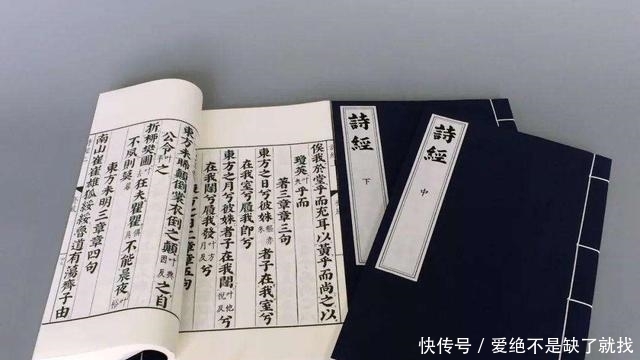 俟我於堂乎而充耳以黃乎而尚之以
瓊英乎而
著三章章三句
東方之日兮彼姝者子在我室兮
在我室兮履我即兮
東方之月兮彼姝者子在我闥叶他悅反兮
在我闥兮履我發叶方月反兮
二章章五句
東方未晞顛倒裳衣倒之顛叶典因反之自
公令之
折柳樊圃狂夫瞿瞿不能晨夜
不夙則莫
東方未明三章章四句
南山崔崔雄狐綏綏魯道有蕩齊子由
詩經
下
詩經
中
快传号/爱绝不是缺了就找